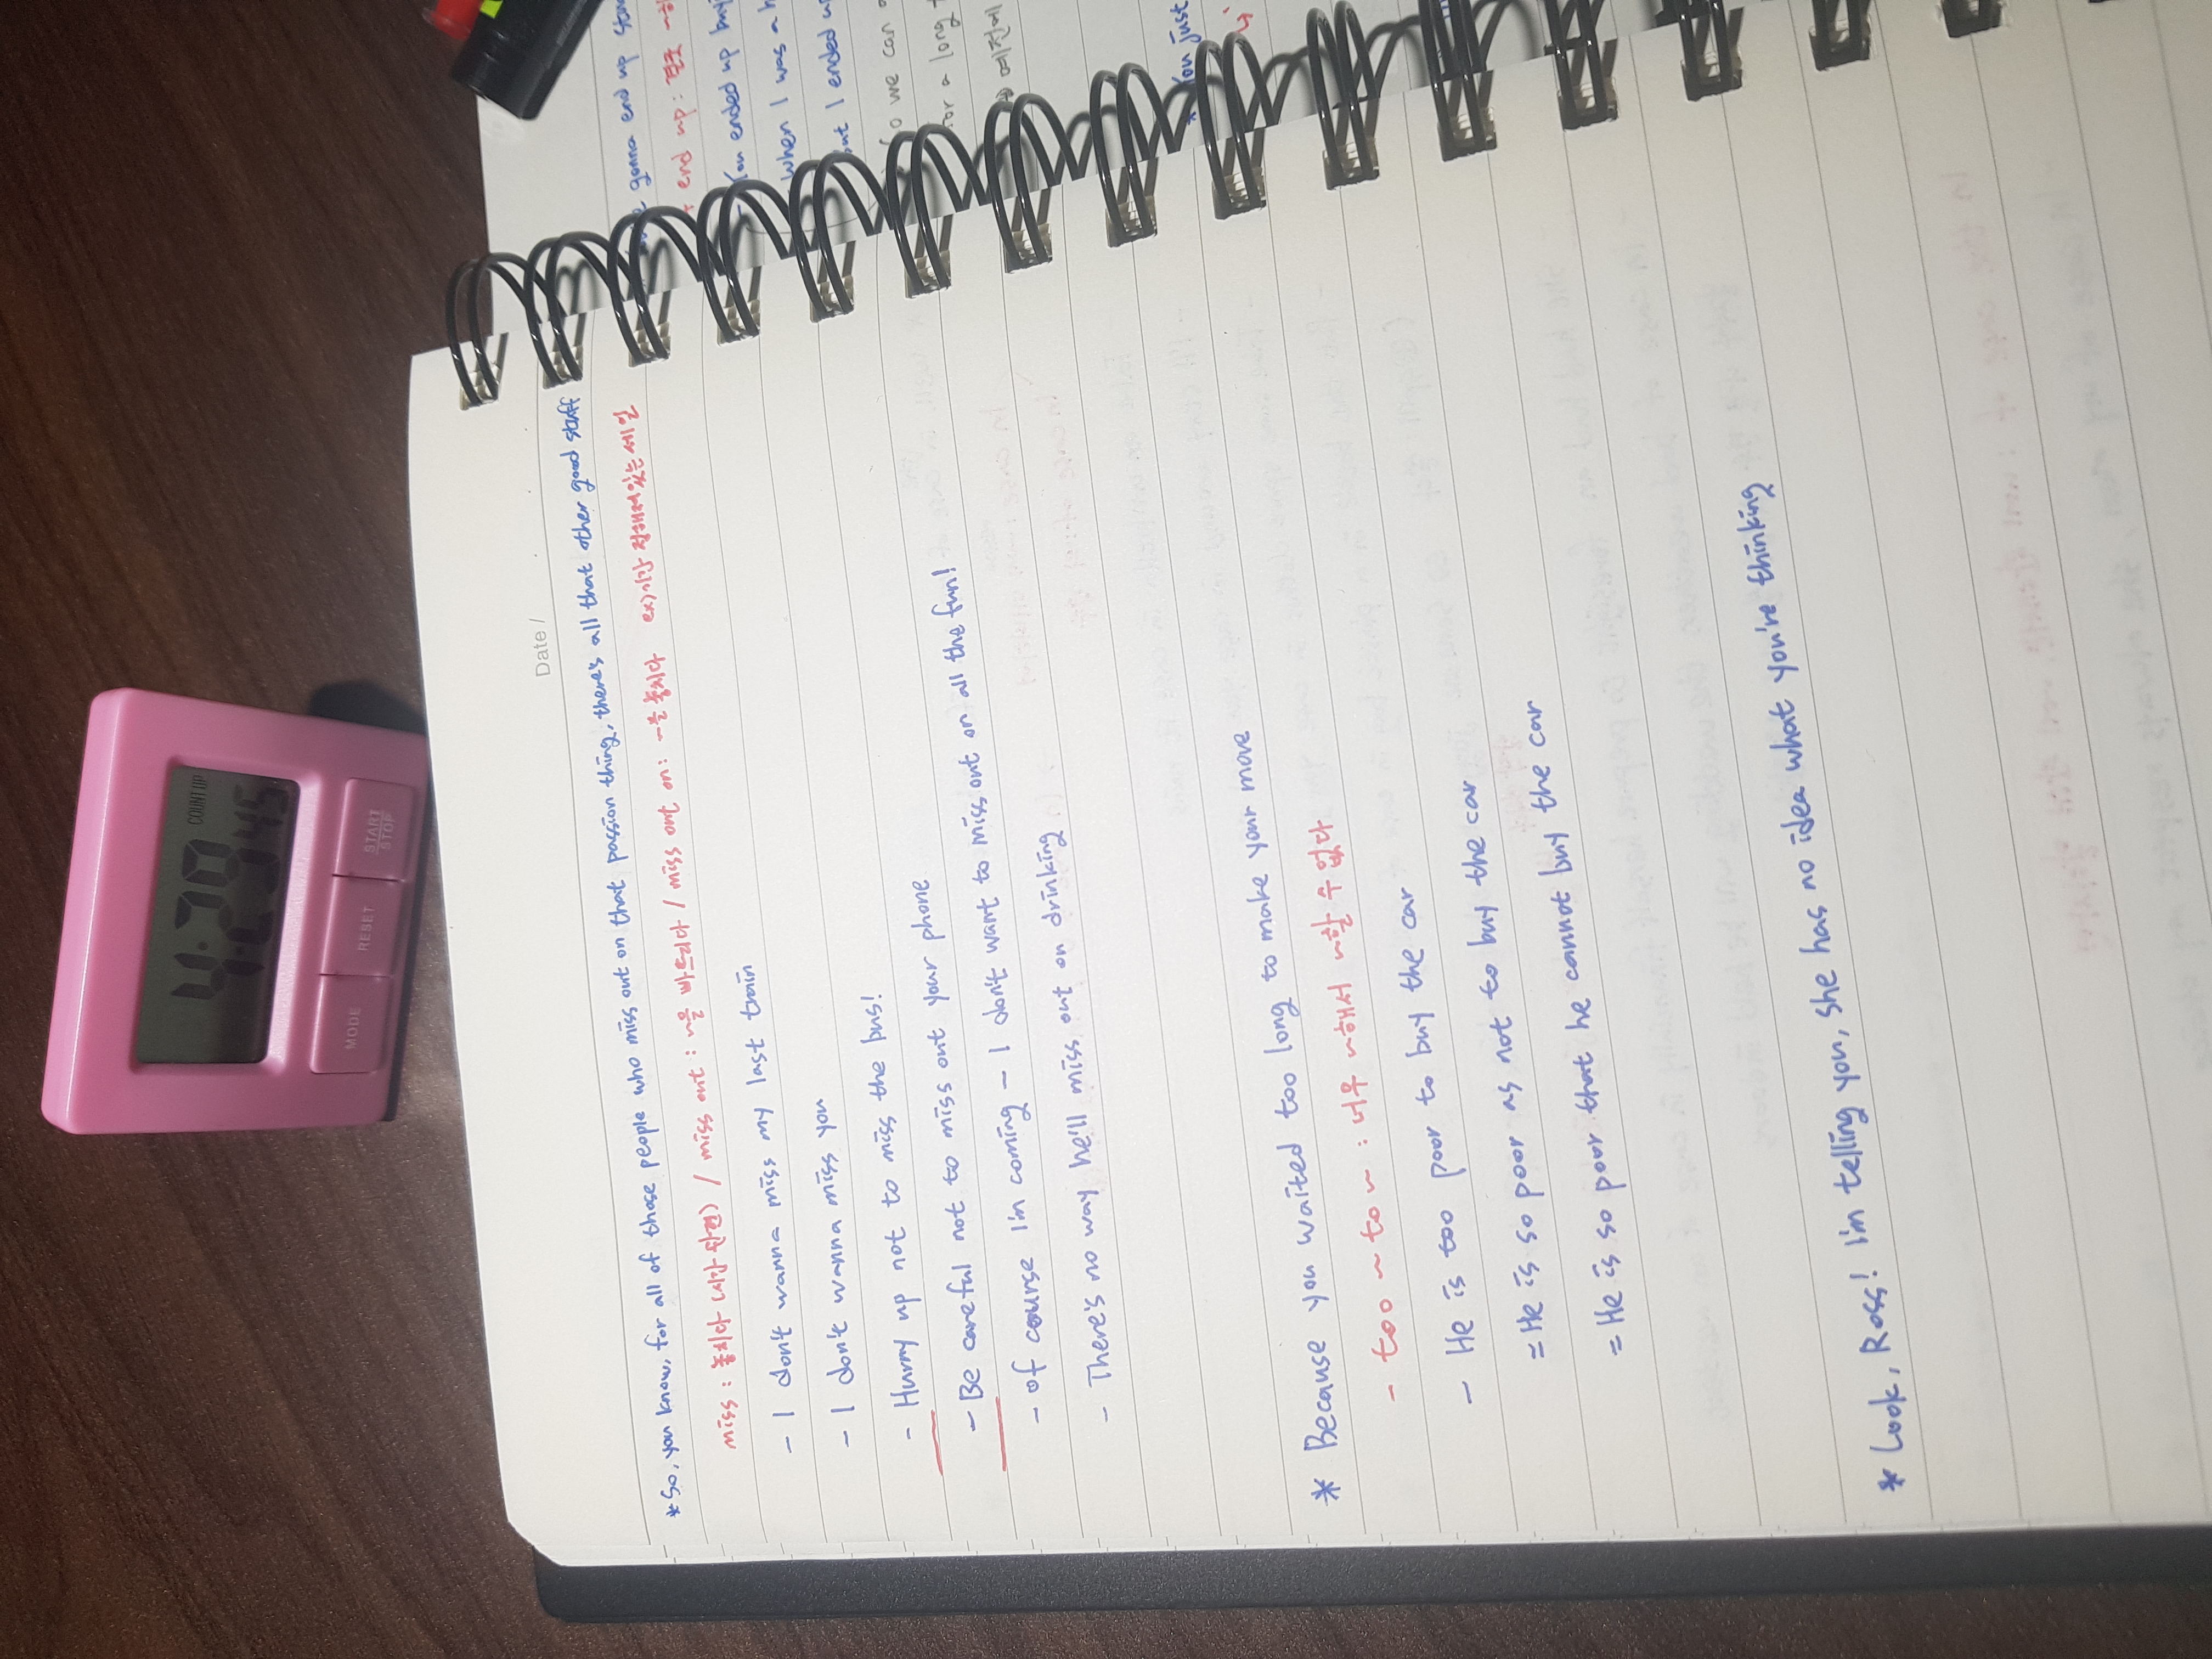 COUNT UP
4:20 45
MODE
RESET
START
STOP
gonna end up
end up : 결국
You ended up
When I was a
but I ended
so we can
for a long
예전에
* You just
Date /
* So, you know, for all of those people who miss out on that passion thing, there's all that other good stuff
miss : 놓치다 (시간 관련) / miss out : ~을 빠뜨리다 / miss out on : ~을 놓치다 ex) 시간 정해져있는 세일
- I don't wanna miss my last train
- I don't wanna miss you
- Hurry up not to miss the bus!
- Be careful not to miss out your phone
- Of course I'm coming - I don't want to miss out on all the fun!
- There's no way he'll miss out on drinking
* Because you waited too long to make your move
- too ~ to ~ : 너무 ~해서 ~할 수 없다
- He is too poor to buy the car
= He is so poor as not to buy the car
= He is so poor that he cannot buy the car
* Look, Ross! I'm telling you, she has no idea what you're thinking